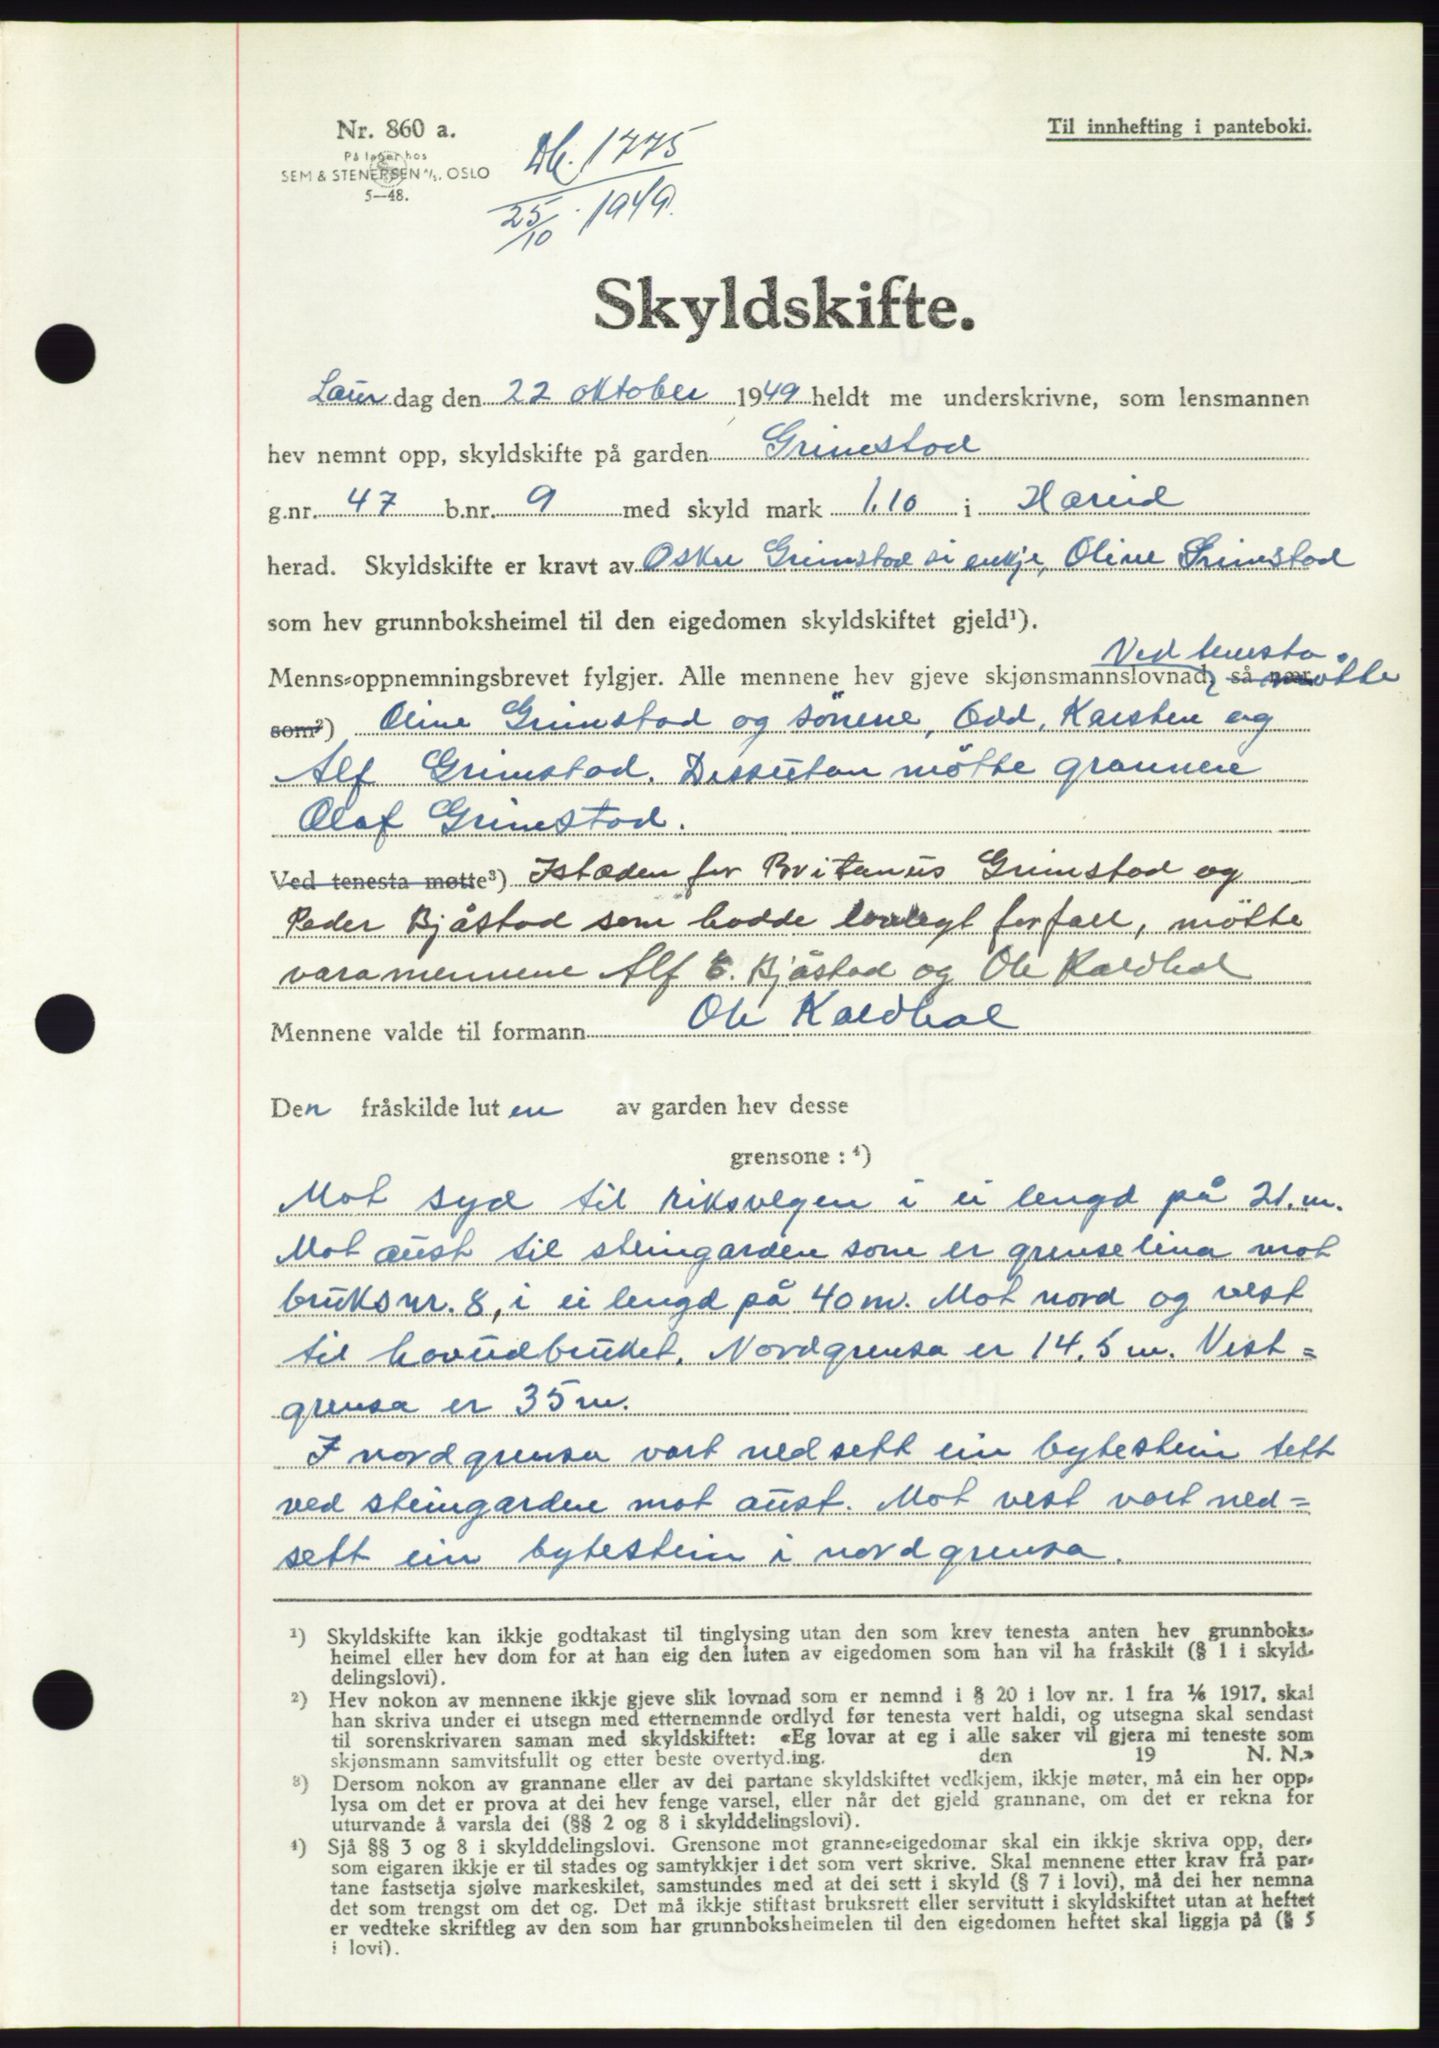 Nr. 860 a.
På lager hos
SEM & STENERSEN A/S, OSLO
5—48.
Db. 1775
25/10 . 1949.
Til innhefting i panteboki.
Skyldskifte.
Laur dag den 22 oktober 1949 heldt me underskrivne, som lensmannen
hev nemnt opp, skyldskifte på garden Grimstad
g.nr. 47 b.nr. 9 med skyld mark 1.10 i Hareid
herad. Skyldskifte er kravt av Oskar Grimstad si enkje, Oline Grimstad
som hev grunnboksheimel til den eigedomen skyldskiftet gjeld¹).
Ved tenesta
Menns-oppnemningsbrevet fylgjer. Alle mennene hev gjeve skjønsmannslovnad, så nær møtte
som²) Oline Grimstad og sönene, Odd, Karsten og
Alf Grimstad. Dessutan mötte grannen
Olaf Grimstad.
Ved tenesta møtte³) Istaden for Britanus Grimstad og
Peder Bjåstad som hadde lovlegt forfall, mötte
varamennene Alf E. Bjåstad og Ole Kaldhol
Mennene valde til formann Ole Kaldhol
Den fråskilde luten av garden hev desse
grensone : ⁴)
Mot syd til riksvegen i ei lengd på 21. m.
Mot aust til steingarden som er grenselina mot
bruksnr. 8, i ei lengd på 40 m. Mot nord og vest
til hovudbruket. Nordgrensa er 14.5 m. Vest=
grensa er 35 m.
I nordgrensa vart nedsett ein bytestein tett
ved steingarden mot aust. Mot vest vart ned=
sett ein bytestein i nordgrensa.
¹) Skyldskifte kan ikkje godtakast til tinglysing utan den som krev tenesta anten hev grunnboks-
heimel eller hev dom for at han eig den luten av eigedomen som han vil ha fråskilt (§ 1 i skyld-
delingslovi).
²) Hev nokon av mennene ikkje gjeve slik lovnad som er nemnd i § 20 i lov nr. 1 fra 1/6 1917, skal
han skriva under ei utsegn med etternemnde ordlyd før tenesta vert haldi, og utsegna skal sendast
til sorenskrivaren saman med skyldskiftet: «Eg lovar at eg i alle saker vil gjera mi teneste som
skjønsmann samvitsfullt og etter beste overtyding. den 19 N. N.»
³) Dersom nokon av grannane eller av dei partane skyldskiftet vedkjem, ikkje møter, må ein her opp-
lysa om det er prova at dei hev fenge varsel, eller når det gjeld grannane, om det er rekna for
uturvande å varsla dei (§§ 2 og 8 i skylddelingslovi).
⁴) Sjå §§ 3 og 8 i skylddelingslovi. Grensone mot granne-eigedomar skal ein ikkje skriva opp, der-
som eigaren ikkje er til stades og samtykkjer i det som vert skrive. Skal mennene etter krav frå par-
tane fastsetja sjølve markeskilet, samstundes med at dei sett i skyld (§ 7 i lovi), må dei her nemna
det som trengst om det og. Det må ikkje stiftast bruksrett eller servitutt i skyldskiftet utan at heftet
er vedteke skriftleg av den som har grunnboksheimelen til den eigedomen heftet skal liggja på (§ 5
i lovi).